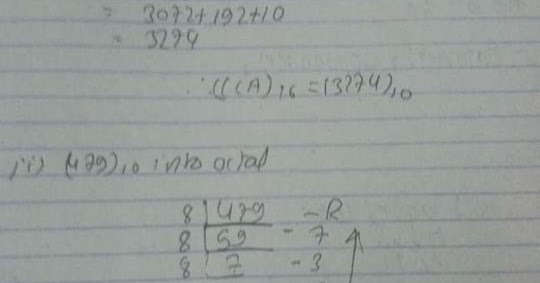 = 3072+192+10
= 3274
∴ (CCA)16 = (3274)10
ii) (479)10 into octal
8 | 479 - R
8 | 59 - 7
8 | 7 - 3